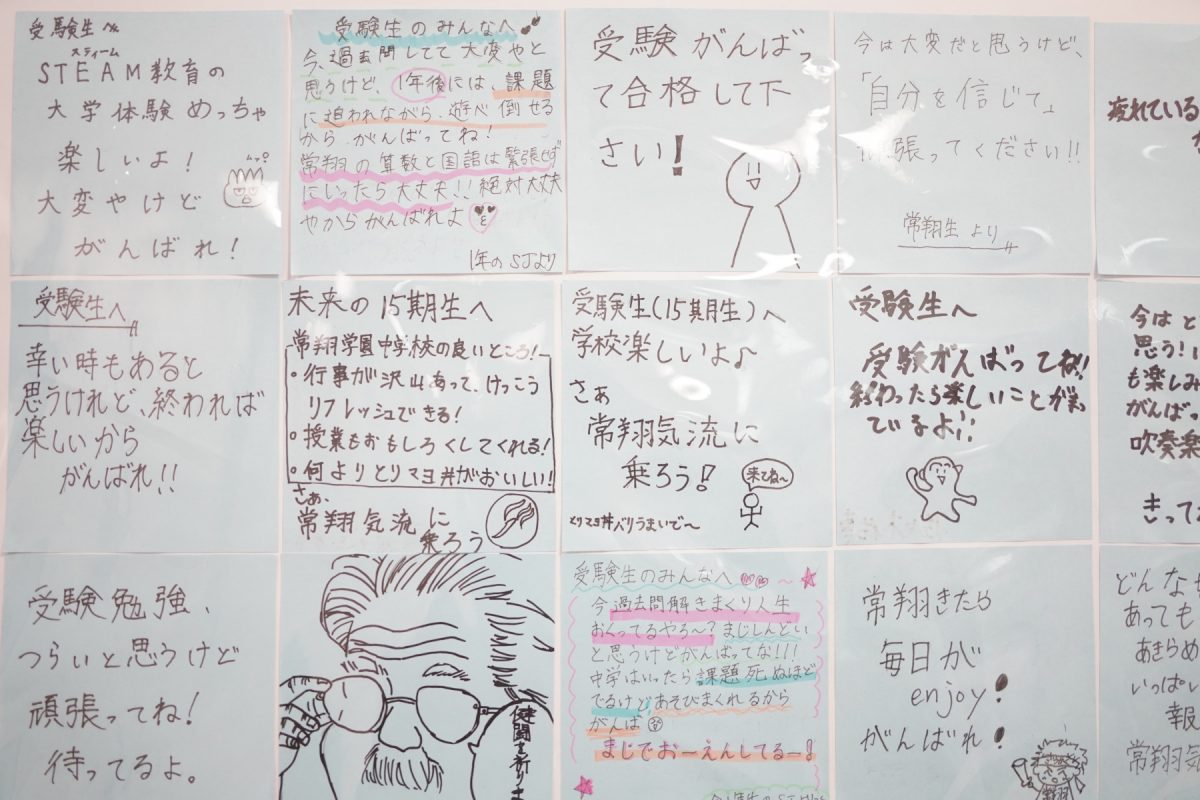 受験生へ
スティーム
STEAM教育の
大学体験めっちゃ
楽しいよ!
大変やけど
がんばれ!
受験生のみんなへ
今、過去問してて大変やと
思うけど、1年後には、課題
に追われながら、遊べ倒せる
から がんばってね!
常翔の算数と国語は緊張せず
にいったら大丈夫!!絶対大丈夫
やからがんばれよ
1年のSJより
受験がんばっ
て合格して下
さい!
今は大変だと思うけど、
「自分を信じて」
張ってください!!
常翔生より
疲れている
受験生へ
幸い時もあると
思うけれど、終われば
楽しいから
がんばれ!!
未来の15期生へ
常翔学園中学校の良いところ!
・行事が沢山あって、けっこう
リフレッシュできる!
・授業もおもしろくしてくれる!
・何よりとりマヨ丼がおいしい!
さぁ、
常翔気流に
乗ろう
受験生(15期生)へ
学校楽しいよ♪
さぁ
常翔気流に
乗ろう!
来てね〜
とりマヨ丼バリうまいで〜
受験生へ
受験がんばってね!
終わったら楽しいことがまっ
ているよ!!
今はと
思う!
も楽しみ
がんばっ
吹奏楽
きって
受験勉強、
つらいと思うけど
頑張ってね!
待ってるよ。
健闘を祈りま
受験生のみんなへ
今過去問解きまくり人生
おくってるやろ〜?まじしんどい
と思うけどがんばってな!!!
中学はいったら課題死ぬほど
でるけど、あそびまくれるから
がんば
まじでおーえんしてるー!
常翔きたら
毎日が
enjoy!
がんばれ!
どんな
あっても
あきらめ
いっぱい
報
常翔気